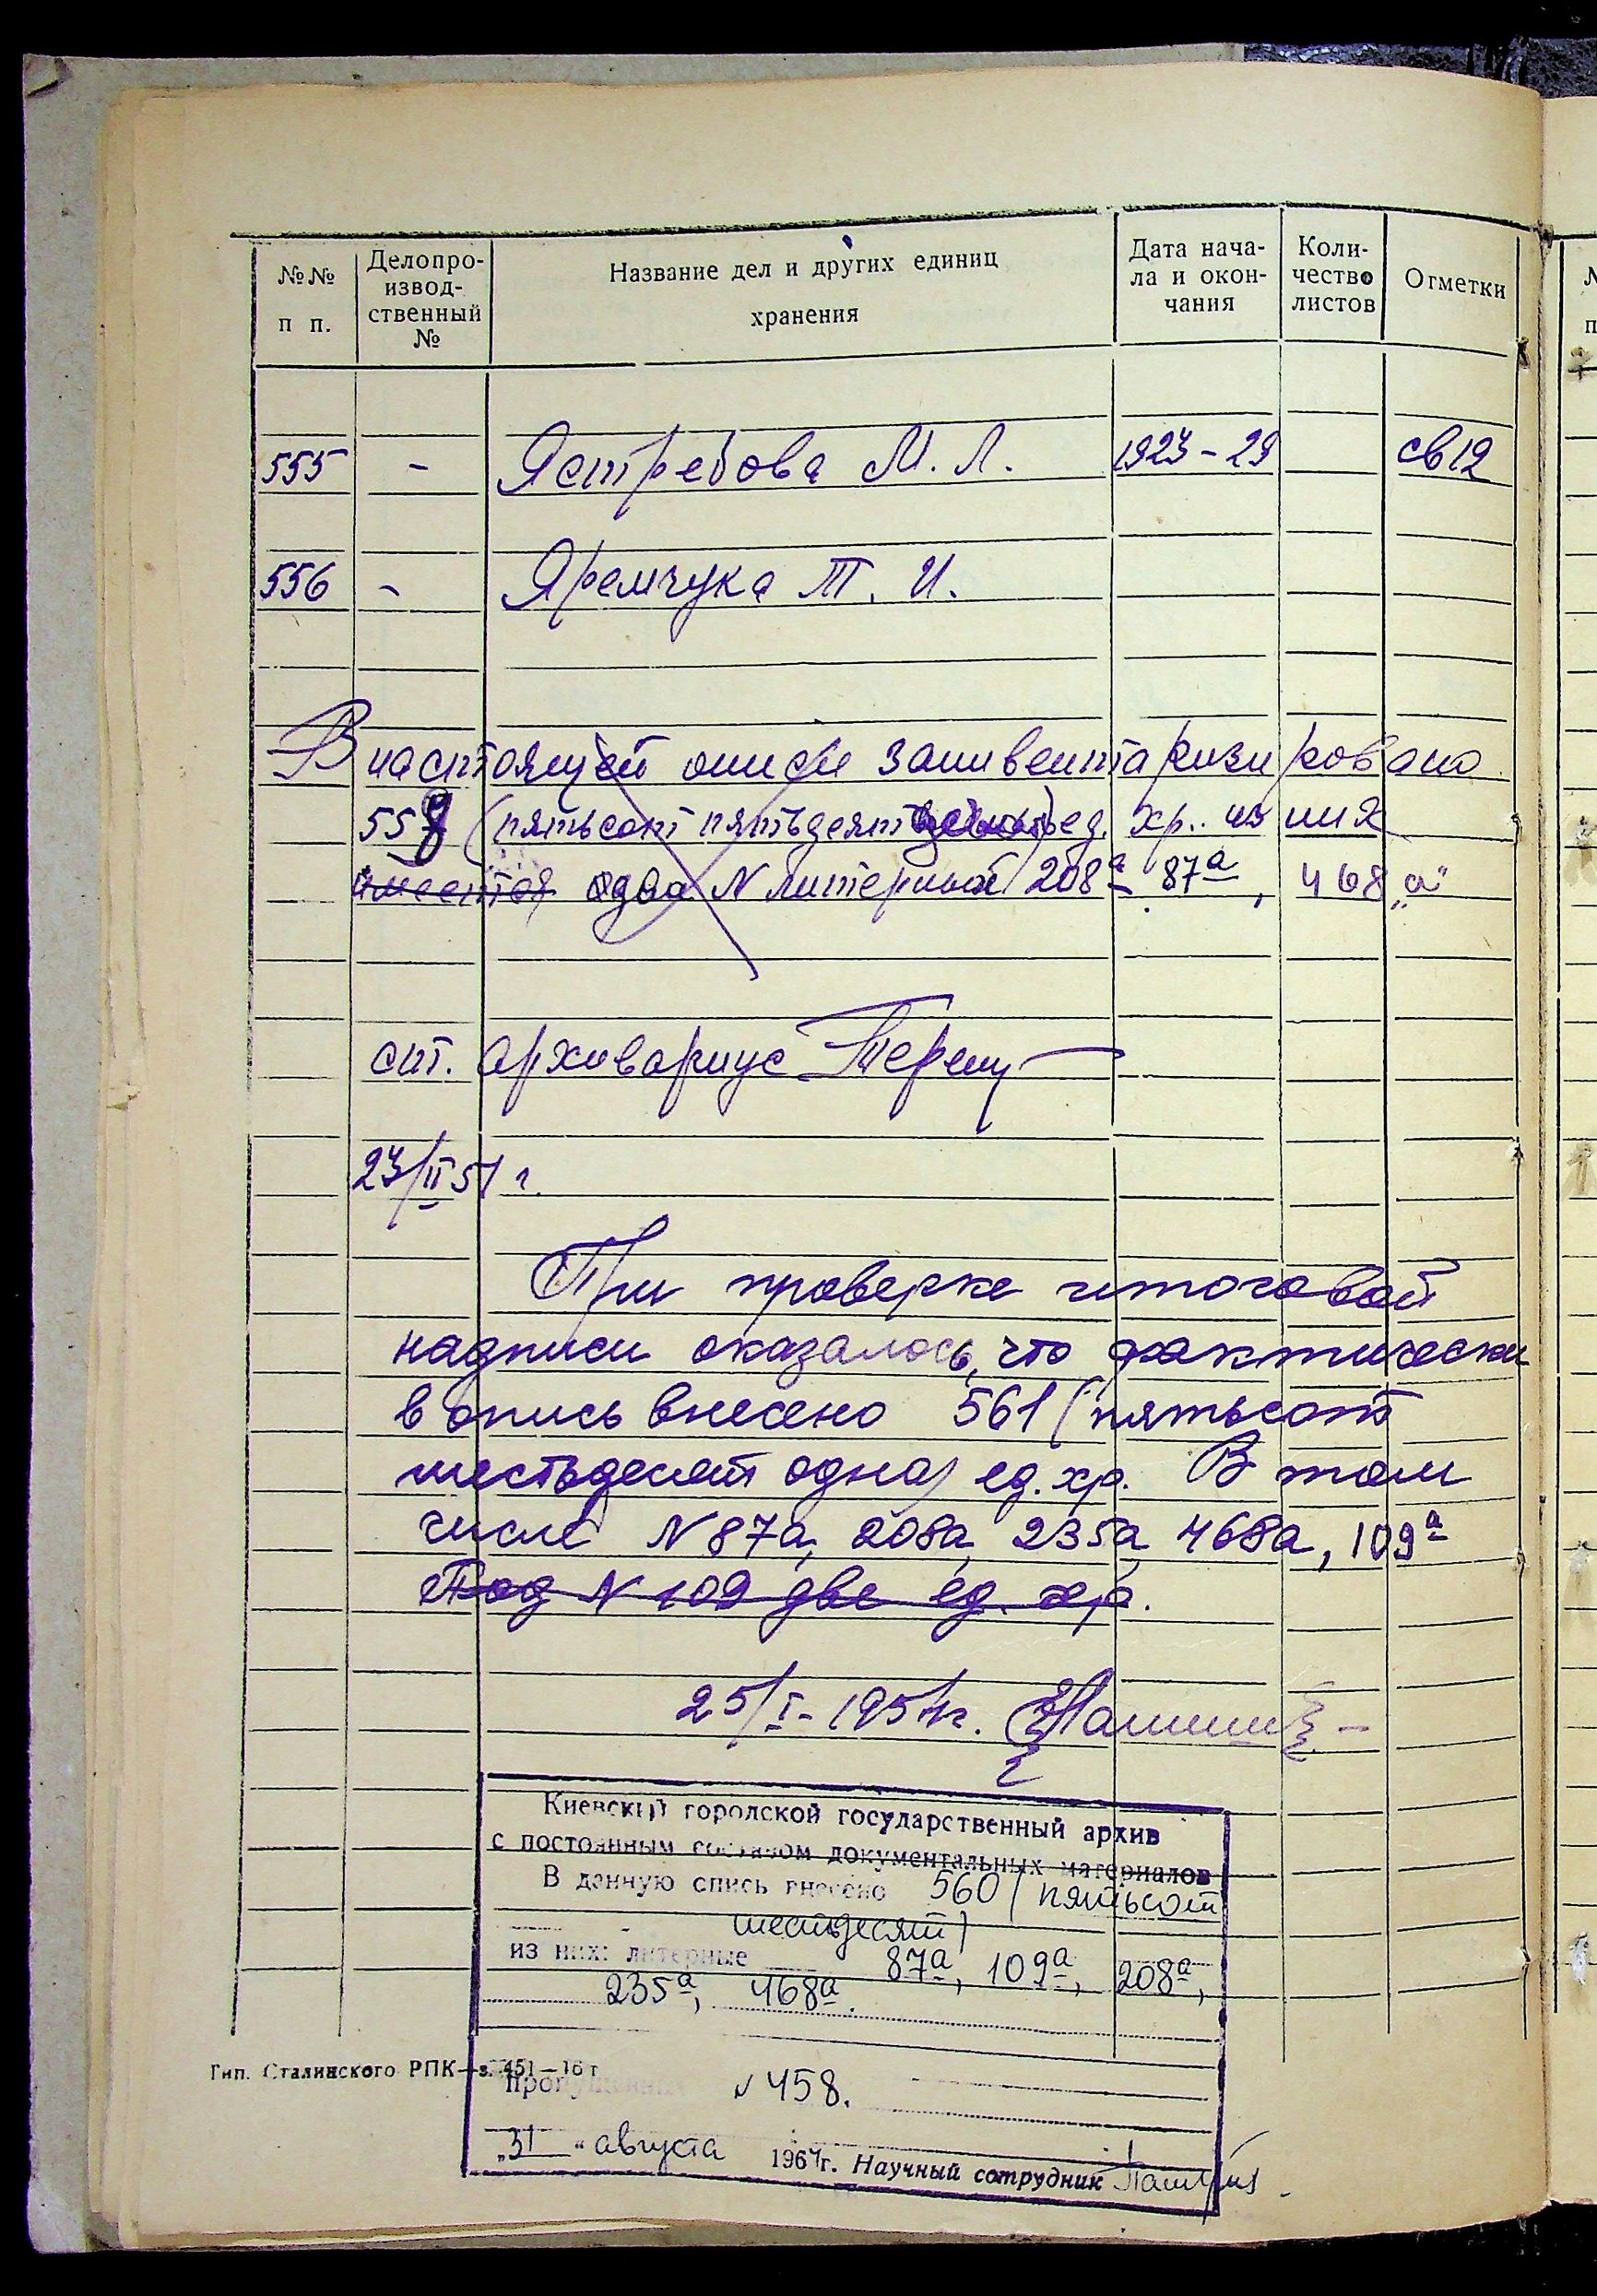 №№ п п.
Делопро-
извод-
ственный
№
Название дел и других единиц
хранения
Дата нача-
ла и окон-
чания
Коли-
чество
листов
Отметки
555 - Ястребова М. Л. 1923-29 св 12
556 - Яремчука Т. И.
В настоящей описи заинвентаризировано
557 (пятьсот пятьдесят ед. хр. из них
имеется одна N литерной 208а 87а, 468 „а"
ст. архивариус
23/II 51 г.
При проверке итоговой
надписи оказалось, что фактически
в опись внесено 561 (пятьсот
шестьдесят одна) ед. хр. В том
числе N 87а, 208а, 235а 468а, 109а
Под N 109 две ед. хр.
25/I-1954г.
Киевский городской государственный архив
с постоянным составом документальных материалов
В данную опись внесено 560 (пятьсот
шестьдесят)
из них: литерные 87а, 109а, 208а,
235а, 468а.
Тип. Сталинского РПК—з. 451—16 т
Пропущенные N 458.
„31" августа 1967г. Научный сотрудник